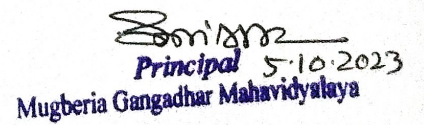 Principal 5.10.2023
Mugberia Gangadhar Mahavidyalaya